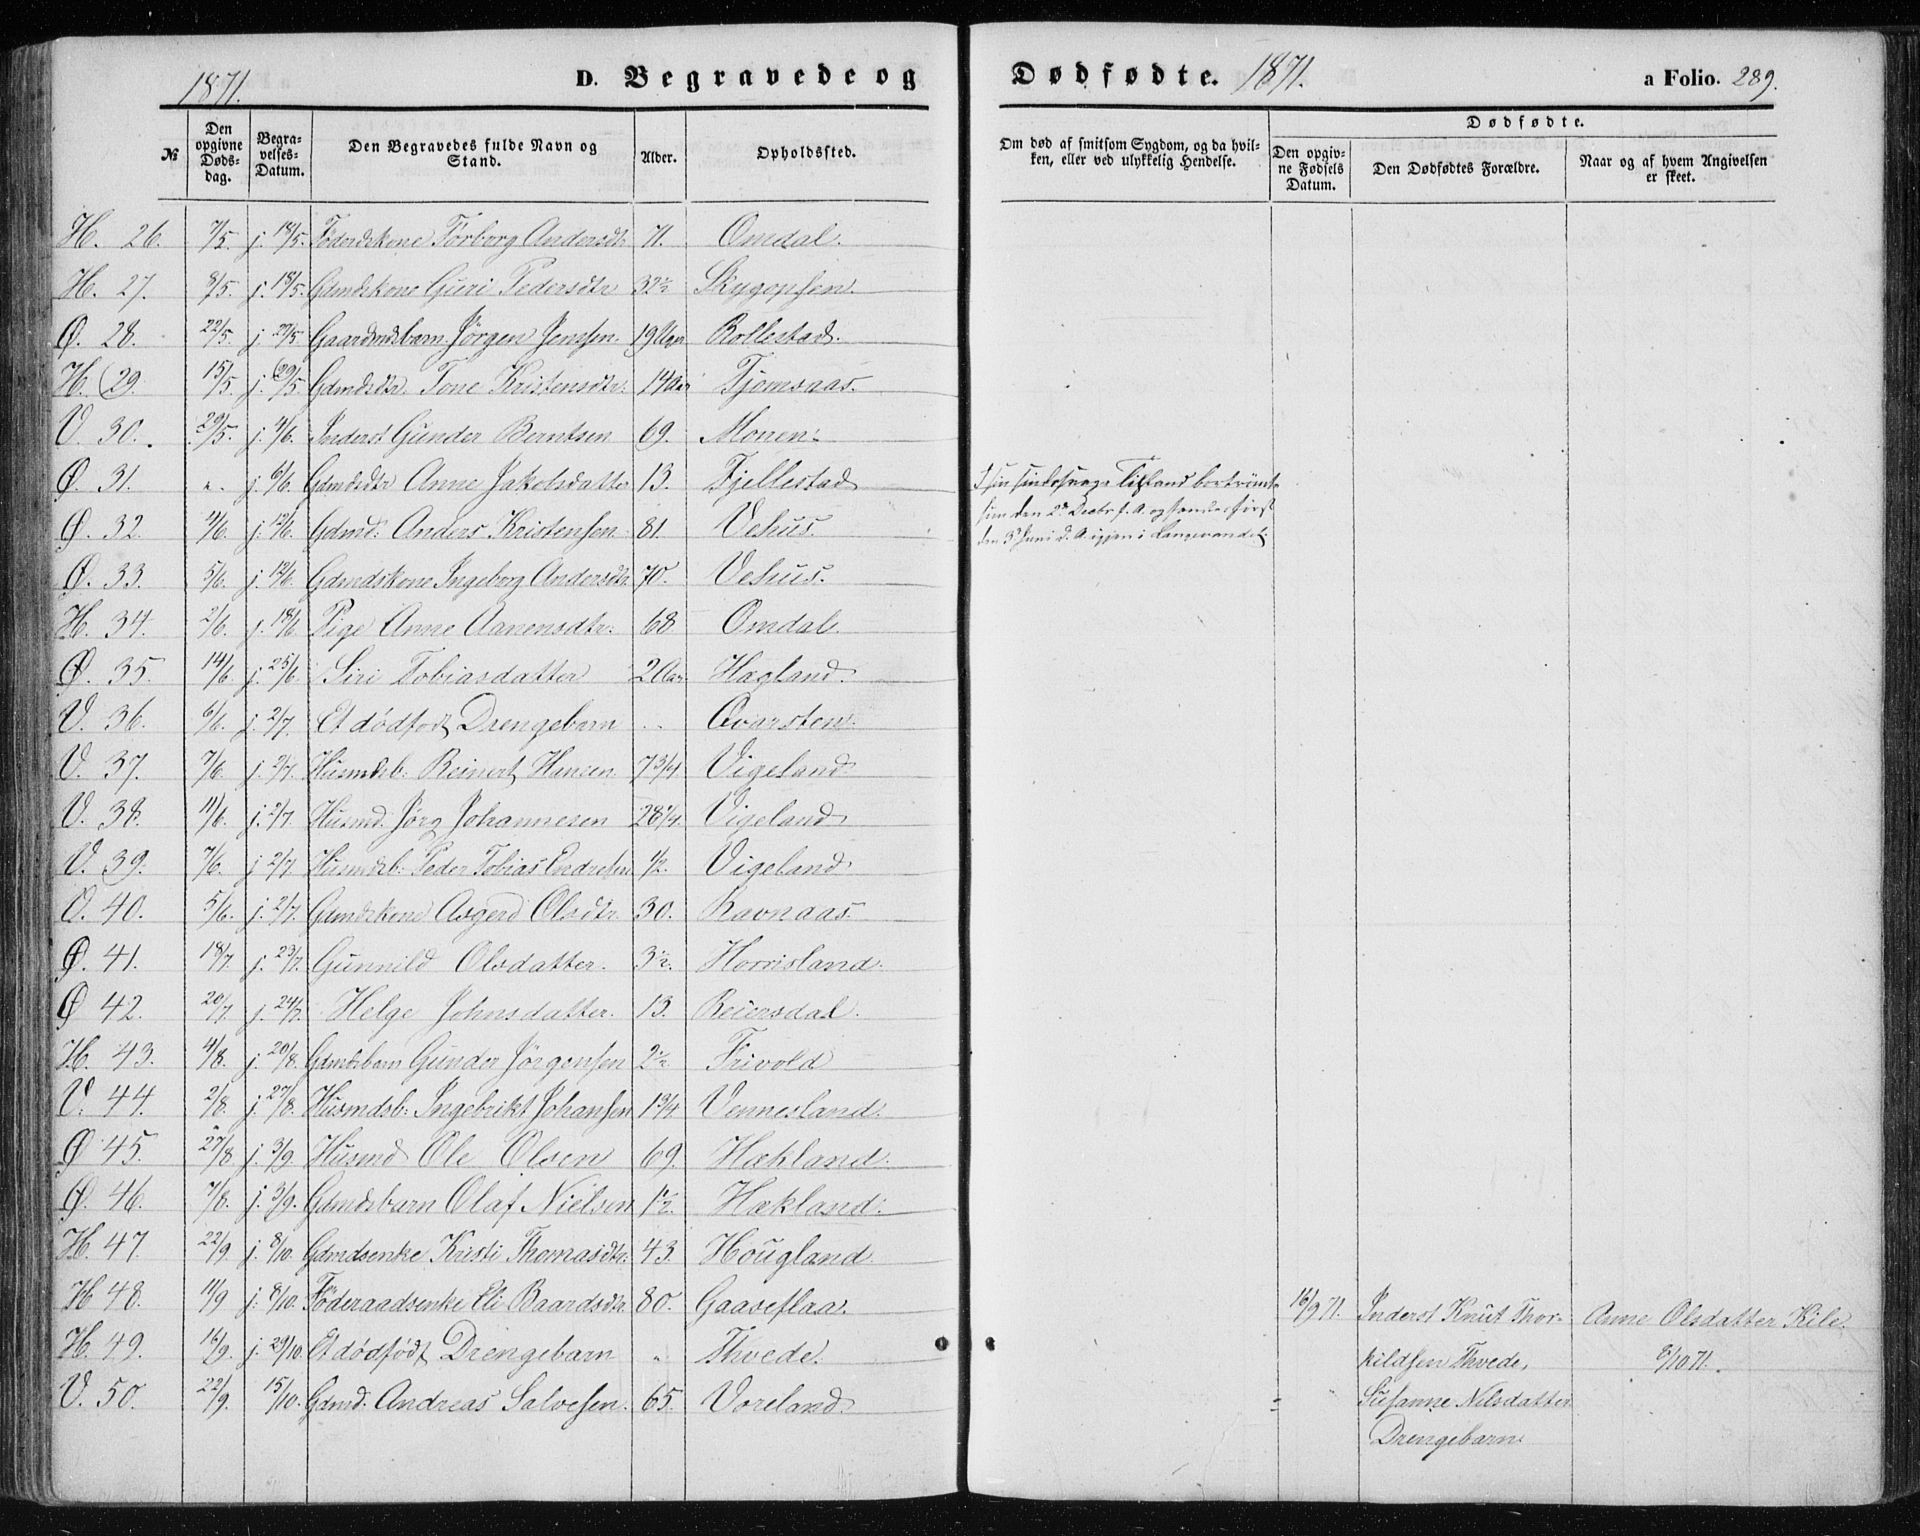 1871. D. Begravede og Dødfødte. 1871. a Folio. 289.
№ Den opgivne Døds-dag. Begra-velses-Datum. Den Begravedes fulde Navn og Stand. Alder. Opholdssted. Om død af smitsom Sygdom, og da hvil-ken, eller ved ulykkelig Hendelse. Dødfødte. Den opgiv-ne Fødsels Datum. Den Dødfødtes Forældre. Naar og af hvem Angivelsen er skeet.
H. 26. 7/5. j. 18/5. Föderdskone Törborg Andersdtr 71. Omdal.
H. 27. 8/5. j. 18/5. Gdmdskone Guri Pedersdtr 32½ Skygopsen.
Ø. 28. 22/5. j. 27/5. Gaardmdsbarn Jörgen Jenssen 19 Uger Rollestad.
H. 29. 15/5. j. 29/5. Gdmdsdtr. Tone Kristensdtr. 14 Aar Tjomsaas.
V. 30. 29/5. j. 4/6. Inderst Gunder Berntsen 69. Monen.
Ø. 31. „ j. 6/6. Gdmdsdtr Anne Jakobsdatter 13. Fjellestad I sin sindssvage Tilstand bortrömt
Ø. 32. 4/6. j. 12/6. Gdmd: Anders Kristensen 81. Vehus. hun den 2d Decbr f. A. og fandtes först
den 3d Juni d. A. igjen i Langevandet.
Ø. 33. 5/6. j. 12/6. Gdmdskone Ingeborg Andersdtr. 70. Vehus.
H. 34. 2/6. j. 18/6. Pige Anne Aanensdtr. 68 Omdal.
Ø. 35. 14/6 j. 25/6. Siri Tobiasdatter 2 Aar Hagland.
V. 36. 6/6. j. 2/7. Et dödfödt Drengebarn „ Qvarsten.
V. 37. 7/6. j. 2/7. Husmdsb: Reinert Hansen 7 3/4 Vigeland
V. 38. 11/6. j. 2/7. Husmd. Jörg Johannesen 28 1/4 Vigeland
V. 39. 7/6. j. 2/7. Husmdsb: Peder Tobias Endresen 1/2. Vigeland
V. 40. 5/6. j. 2/7. Gdmdskone Asgerd Olsdtr. 30. Ravnaas.
Ø. 41. 18/7. j. 23/7. Gunnild Olsdatter. 3½. Horrisland.
Ø 42. 20/7. j. 24/7. Helge Johnsdatter. 13. Reiersdal.
H. 43. 4/8. j. 20/8. Gdmdsbarn Gunder Jörgensen 2½ Frivold
V. 44. 2/8. j. 27/8. Husmdsb: Ingebrikt Johansen 1 3/4 Vennesland.
Ø 45. 27/8 j. 3/9. Husmd Ole Olsen 69. Hækland.
Ø. 46. 7/8. j. 3/9. Gdmdsbarn Olaf Nielsen 1½. Hækland.
H. 47. 22/9. j. 8/10. Gdmdsenke Kristi Thomasdtr. 43. Hougland.
H 48. 11/9 j. 8/10. Föderaadsenke Eli Baardsdtr 80. Gaaseflaa. 16/9 71. Inderst Knut Thor- Anne Olsdatter Kile
H. 49. 16/9. j. 29/10. Et dödfödt Drengebarn „ Thvede. kildsen Thvede, 8/10 71.
V. 50. 22/9. 15/10. Gdmd. Andreas Salvesen. 65. Voreland. Susanne Nilsdatter
Drengebarn.